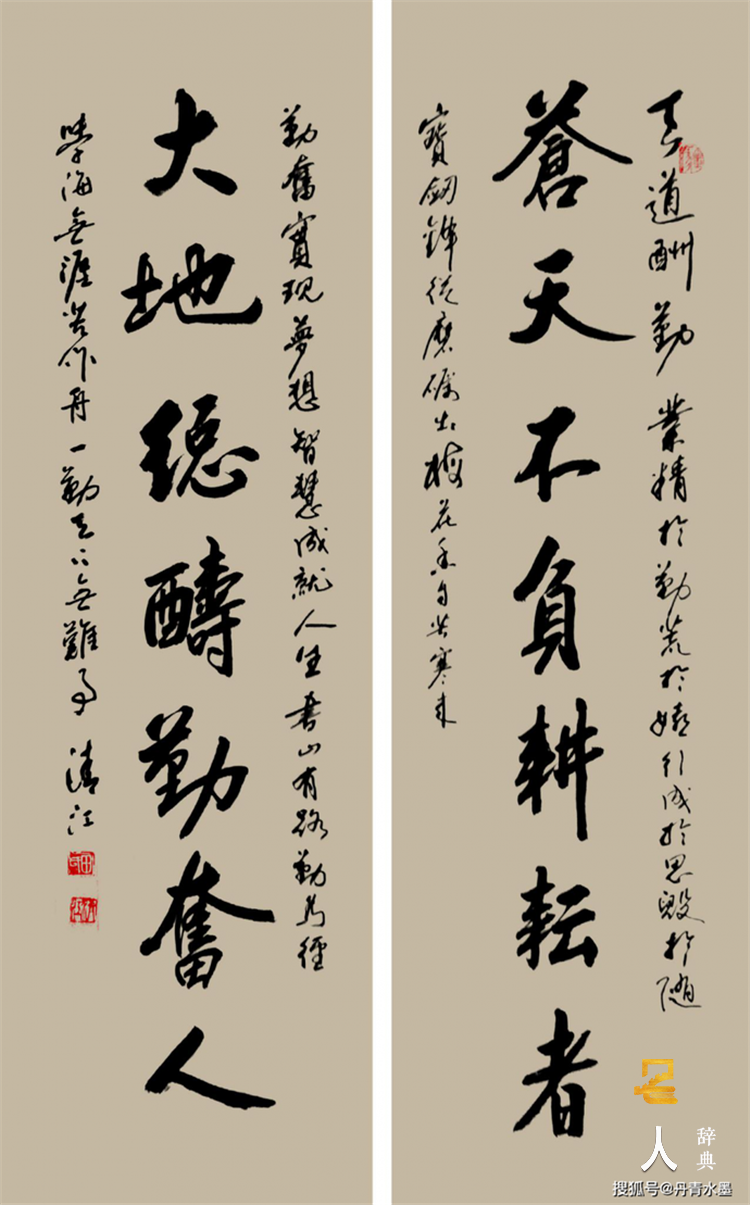 天道酬勤 業精於勤荒於嬉行成於思毀於隨
蒼天不負耕耘者
寶劍鋒從磨礪出梅花香自苦寒來
勤奮實現夢想智慧成就人生書山有路勤為徑
大地總醻勤奮人
學海無涯苦作舟一勤天下無難事 清江
人
辞典
搜狐号@丹青水墨